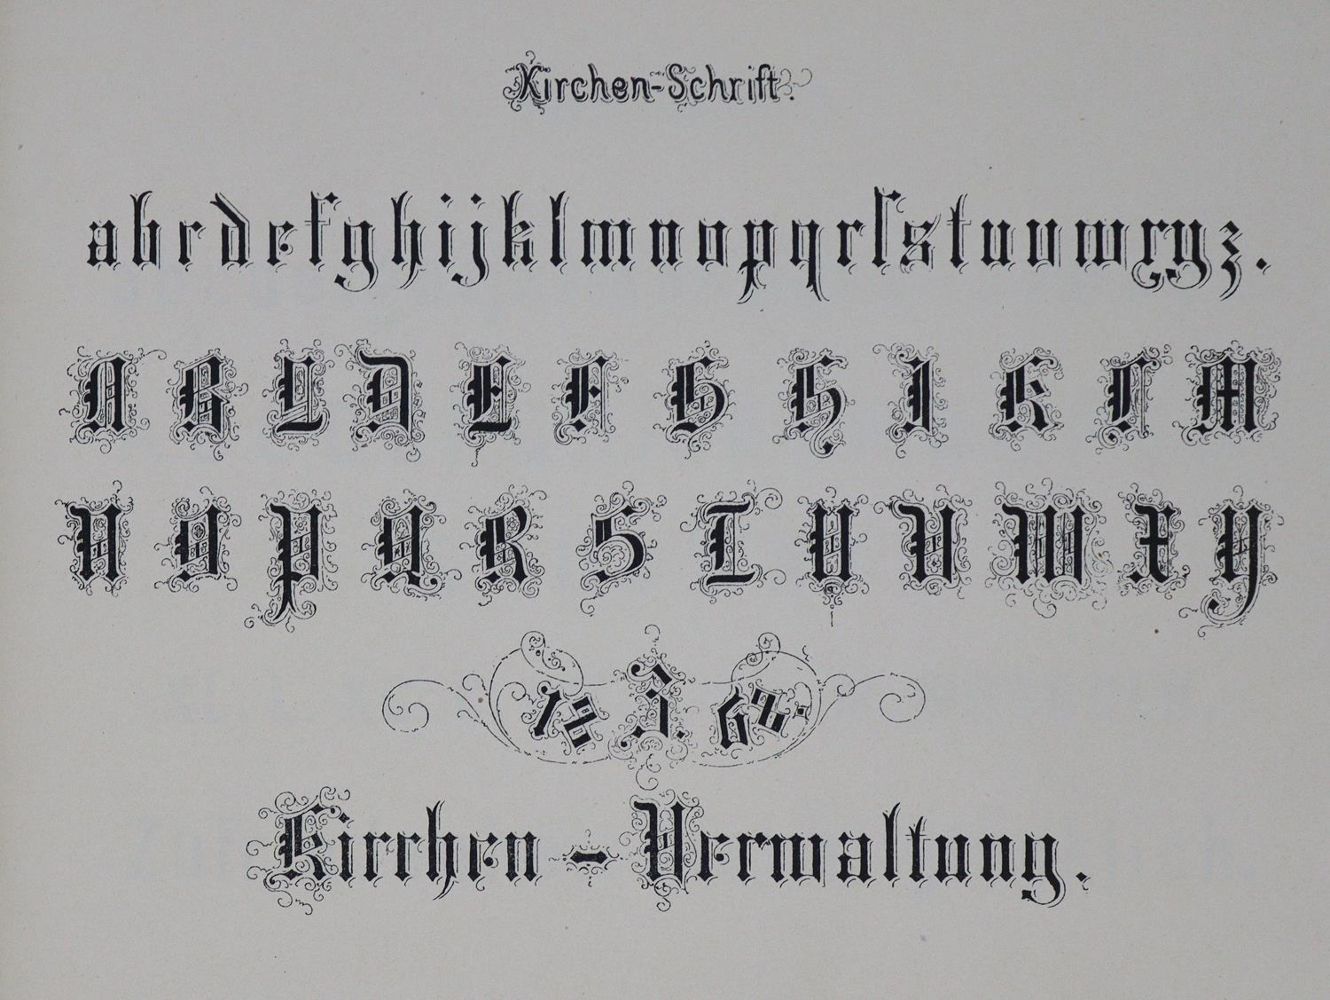 Kirchen-Schrift.
abcdefghijklmnopqrſstuvwxyz.
ABCDEFGHIKLM
NOPQRSTUVWXY
18 Z. 68.
Kirchen-Verwaltung.